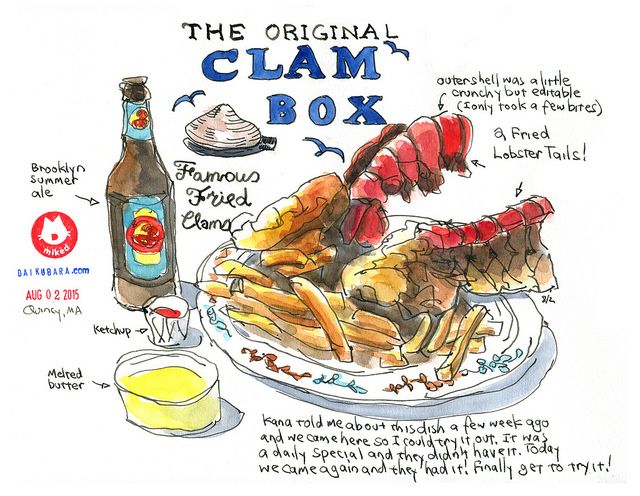 THE ORIGINAL
CLAM
BOX
Famous
Fried
Clams
outershell was a little
crunchy but editable
(I only took a few bites)
2 Fried
Lobster Tails!
Brooklyn
summer
ale
miked
DAIKUBARA.com
AUG 02 2015
Quincy, MA
Ketchup
Melted
butter
8/2
Kana told me about this dish a few week ago
and we came here so I could try it out. It was
a daily special and they didn't have it. Today
we came again and they had it! Finally get to try it!